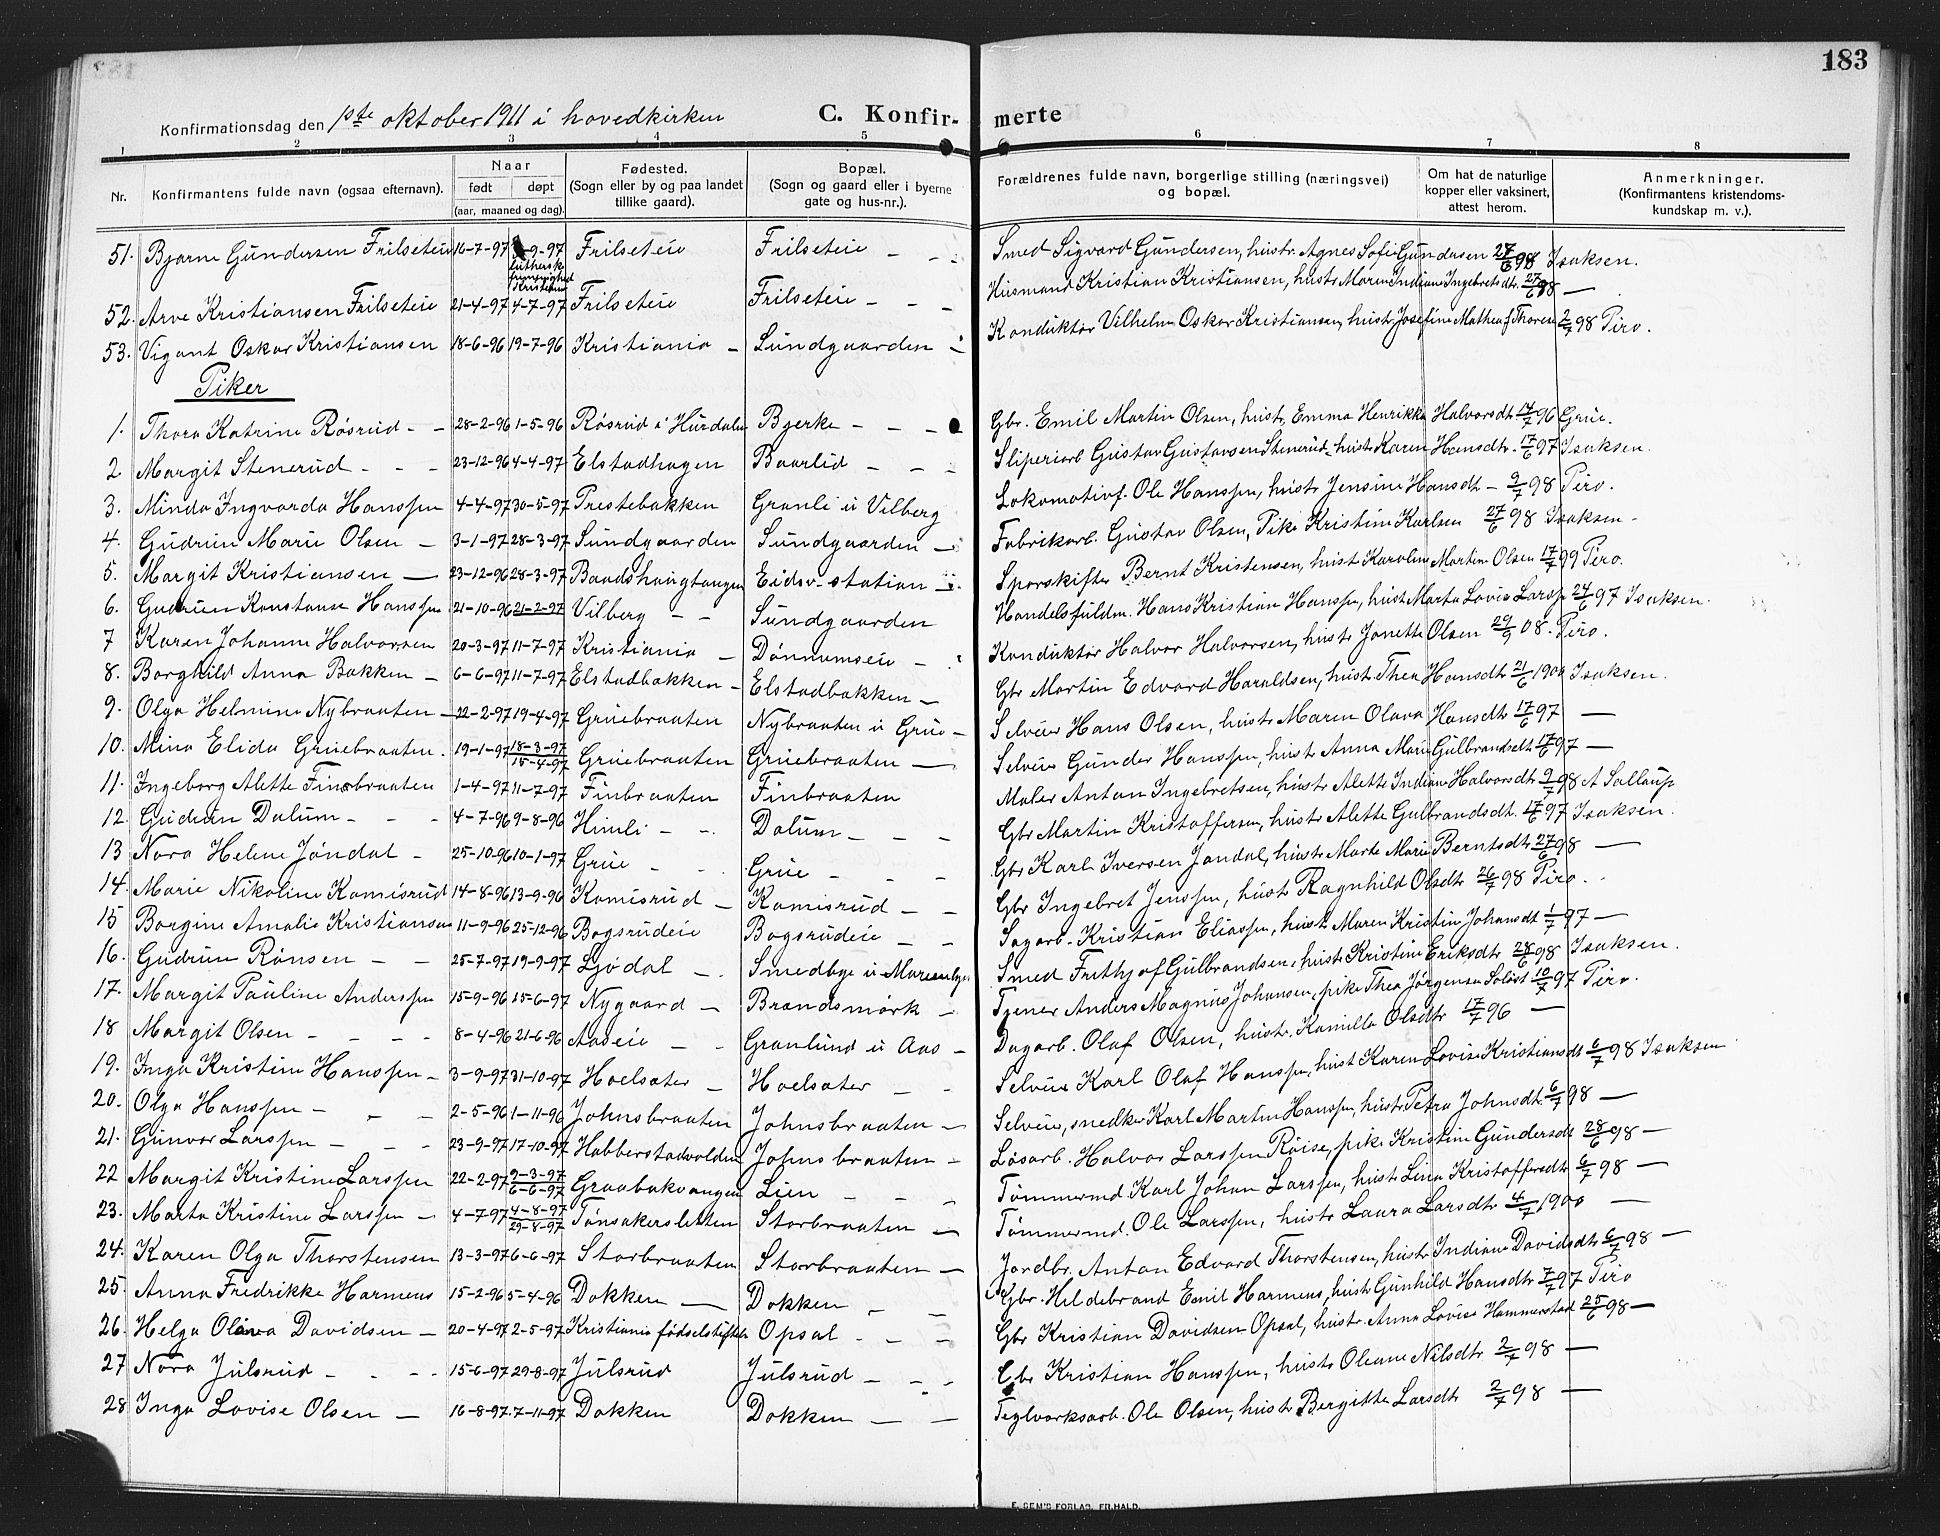 183
Konfirmationsdag den 1ste oktober 1911 i hovedkirken C. Konfir- merte
1 2 3 4 5 6 7 8
Nr. Konfirmantens fulde navn (ogsaa efternavn). Naar født døpt (aar, maaned og dag). Fødested. (Sogn eller by og paa landet tillike gaard). Bopæl. (Sogn og gaard eller i byerne gate og hus-nr.). Forældrenes fulde navn, borgerlige stilling (næringsvei) og bopæl. Om hat de naturlige kopper eller vaksinert, attest herom. Anmerkninger. (Konfirmantens kristendoms- kundskap m. v.).
51. Bjarne Gundersen Frilseteie 16-7-97 -9-97 Frilseteie Frilseteie - - Smed Sigvard Gundersen, hustr. Agnes Sofie Gundersen 27/6 98 Isaksen.
52. Arve Kristiansen Frilseteie 21-4-97 4-7-97 Frilseteie Frilseteie - - Husmand Kristian Kristiansen, hustr. Maren Indiane Ingebretsdtr. 27/6 98 —
53. Vigant Oskar Kristiansen 18-6-96 19-7-96 Kristiania - Sundgaarden - Konduktør Vilhelm Oskar Kristiansen, hustr Josefine Mathea f. Thoresen 2/7 98 Piro.
Piker
1. Thora Katrine Røsrud - - 28-2-96 1-5-96 Røsrud i Hurdalen Bjerke - - - Gbr. Emil Martin Olsen, hustr. Emma Henrikke Halvorsdtr 14/7 96 Grue.
2 Margit Stenerud - - - 23-12-96 4-4-97 Elstadhagen Baarlid - - - Sliperiarb Gustav Gustavsen Stenerud, hustr. Karen Hansdtr. 17/6 97 Isaksen.
3. Minda Ingvarda Hanssen 4-4-97 30-5-97 Prestebakken Granli u Vilberg Lokomotivf. Ole Hanssen, hustr Jensine Hansdtr - 9/7 98 Piro.
4. Gudrun Marie Olsen - 3-1-97 28-3-97 Sundgaarden Sundgaarden - Fabrikarb. Gustav Olsen, Pike Kristine Karlsen 27/6 98 Isaksen -
5. Margit Kristiansen - 23-12-96 28-3-97 Baadshaugtangen Eidsv. station - Sporskifter Bernt Kristensen, hustr Karoline Martine Olsen 17/7 99 Piro.
6. Gudrun Konstanse Hanssen 21-10-96 21-2-97 Vilberg - - Sundgaarden Handelsfuldm. Hans Kristian Hanssen, hustr Marta Lovise Larssen 24/6 97 Isaksen.
7 Karen Johanne Halvorsen 20-3-97 11-7-97 Kristiania - Dønnumseie - Konduktør Halvor Halvorsen, hustr Janette Olsen 29/9 08. Piro.
8. Borghild Anna Bakken - 6-6-97 11-7-97 Elstadbakken - Elstadbakken - Gbr Martin Edvard Haraldsen, hustr Thea Hansdtr 21/6 1900 Isaksen.
9. Olga Helmine Nybraaten - 22-2-97 19-4-97 Gruebraaten Nybraaten u Grue - Selveier Hans Olsen, hustr Maren Olava Hansdtr 17/6 97 —
10. Mina Elida Gruebraaten. 19-1-97 18-3-97 15-4-97 Gruebraaten Gruebraaten - Selveier Gunder Hanssen, hustr Anna Marie Gulbrandsdtr 17/6 97 —
11. Ingeborg Alette Finsbraaten 1-4-97 11-7-97 Finbraaten Finbraaten Maler Anton Ingebretsen, hustr Alette Indiane Halvorsdtr 9/7 98 A Sallaup
12. Gudrun Dalum - - - 4-7-96 9-8-96 Himli - - Dalum - - - Gbr Martin Kristoffersen, hustr Alette Gulbrandsdtr. 17/6 97 Isaksen.
13 Nora Helene Jøndal - 25-10-96 10-1-97 Grue - - Grue - - - Gbr Karl Iversen Jøndal, hustr Marte Marie Berntsdtr 27/6 98 —
14. Marie Nikoline Kamisrud 14-8-96 13-9-96 Kamisrud - Kamisrud - - Gbr Ingebret Jenssen, hustr Ragnhild Olsdtr 26/7 98 Piro.
15 Borgine Amalie Kristiansen 11-9-96 25-12-96 Bogsrudeie Bogsrudeie - - Sagarb. Kristian Eliassen, hustr. Maren Kristine Johansdtr 1/7 97 —
16. Gudrun Rønsen - - 25-7-97 19-9-97 Ljødal - - Smedbye u Marienbye Smed Frithjof Gulbrandsen, hustr Kristine Eriksdtr 28/6 98 Isaksen.
17. Margit Pauline Anderssen 15-9-96 15-6-97 Nygaard - Brandsmørk - Tjener Anders Magnus Johansen, pike Thea Jørgensen Soløst 10/7 97 Piro.
18 Margit Olsen - - - - 8-4-96 21-6-96 Aaseie - - Granlund u Aas - Dagarb. Olaf Olsen, hustr. Kamilla Olsdtr 17/7 96 —
19. Inga Kristine Hanssen - 3-9-97 31-10-97 Hoelsæter - Hoelsæter - - Selveier Karl Olaf Hanssen, hustr Karen Lovise Kristiansdtr 6/7 98 Isaksen.
20. Olga Hanssen - - - 2-5-96 1-11-96 Johnsbraaten Johnsbraaten - Selveier, snedker Karl Martin Hanssen, hustr Petra Johnsdtr. 6/7 98 —
21. Gunvor Larssen - - - 23-9-97 17-10-97 Habberstadvolden Johnsbraaten - Løsarb. Halvor Larssen Røise, pike Kristine Gundersdtr 28/6 98 —
22 Margit Kristine Larssen 22-2-97 9-3-97 6-6-97 Graabakvangen Lien - - - Tømmermd. Karl Johan Larssen, hustr Lina Kristoffersdtr 6/7 98 —
23. Marta Kristine Larssen - 4-7-97 4-8-97 29-8-97 Tønsakersletten Storbraaten - Tømmermd. Ole Larssen, hustr Laura Larsdtr 4/7 1900 —
24. Karen Olga Thorstensen 13-3-97 6-6-97 Storbraaten Storbraaten - Jordbr. Anton Edvard Thorstensen, hustr Indiane Davidsdtr 6/7 98 —
25. Anna Fredrikke Harmens 15-2-96 5-4-96 Dokken - Dokken - - Gbr. Hildebrand Emil Harmens, hustr Gunhild Hansdtr 7/7 97 Piro
26. Helga Olava Davidsen - 20-4-97 2-5-97 Kristiania fødselstiftelse Opsal - - - Gbr Kristian Davidsen Opsal, hustr Anna Lovise Hammerstad 25/6 98 —
27 Nora Julsrud - - - - 15-6-97 29-8-97 Julsrud Julsrud - - - Gbr Kristian Hanssen, hustr Oleane Nilsdtr 2/7 98 —
28 Inga Lovise Olsen - 16-8-97 7-11-97 Dokken Dokken - - Teglverksarb. Ole Olsen, hustr Bergitte Larsdtr 2/7 98 —
E. SEM'S FORLAG, FR.HALD.